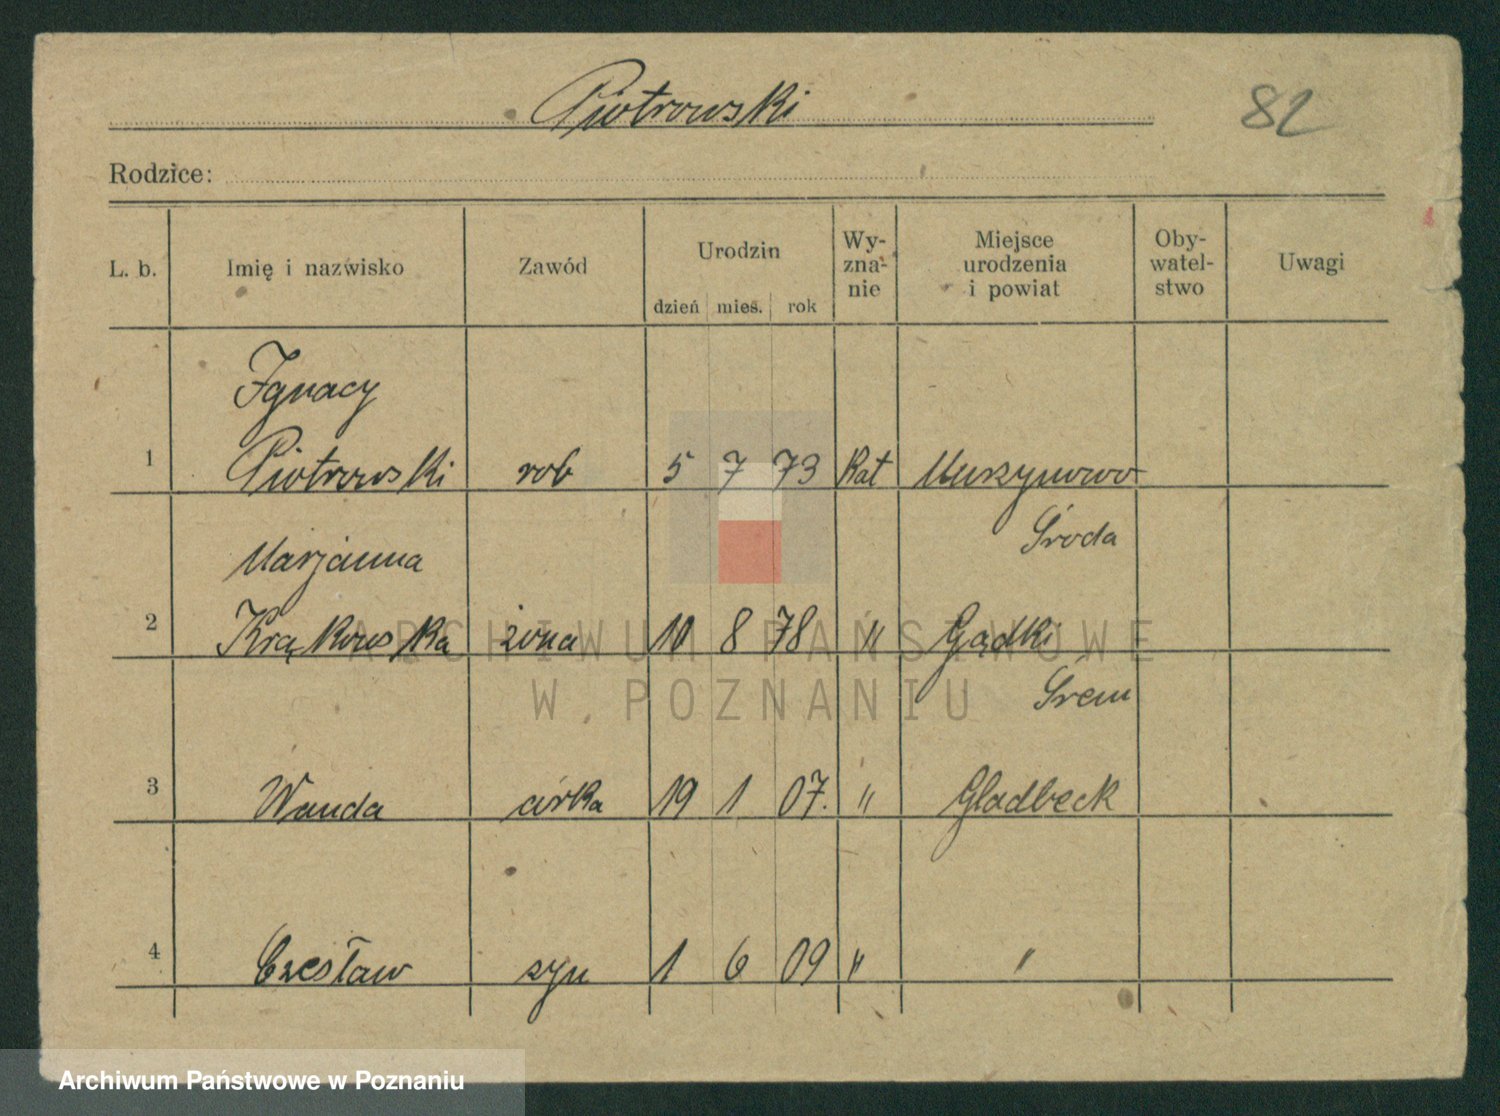 Piotrowski
82
Rodzice:
L. b. Imię i nazwisko Zawód Urodzin dzień mies. rok Wy-zna-nie Miejsce urodzenia i powiat Oby-watel-stwo Uwagi
Ignacy
1 Piotrowski rob 5 7 73 Kat Murzynowo
Środa
Marjanna
2 Krąkowska żona 10 8 78 " Gądki
Śrem
3 Wanda córka 19 1 07. " Gladbeck
4 Czesław syn 1 6 09 " "
ARCHIWUM PAŃSTWOWE
W POZNANIU
Archiwum Państwowe w Poznaniu